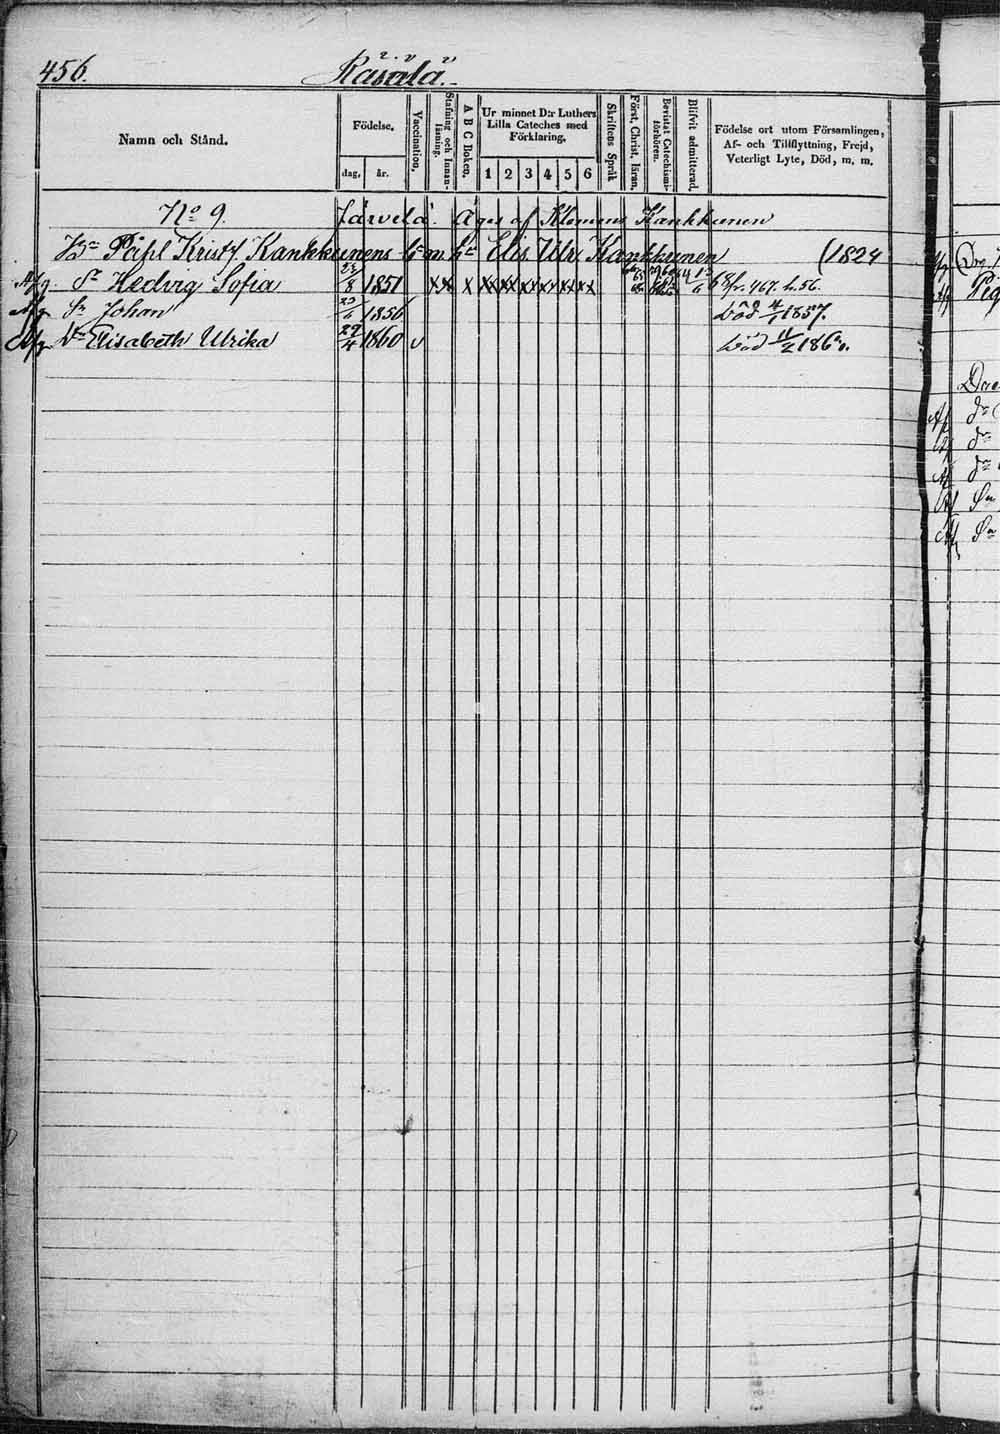 456. Räsälä.
Namn och Stånd. Födelse. Vaccination. Stafning och Innanläsning. A B C Boken. Ur minnet D:r Luthers Lilla Cateches med Förklaring. Skriftens Språk Först. Christ. läran. Bevistat Catechismiförhören. Blifvit admitterad. Födelse ort utom Församlingen, Af- och Tillflyttning, Frejd, Veterligt Lyte, Död, m. m.
dag. år. 1 2 3 4 5 6
No 9. Järvelä. Äges af Klemens Kankkunen
Påhl Kristf. Kankkunens Elis. Ulr. Kankkunen (1824
Afg. Hedvig Sofia 23/8 1851 x x x xx xx xx xx xx xx 68 fr. 467. h. 56.
Afg Sn Johan 1856 Död 4/1 1857.
Afg Elisabeth Ulrika 29/4 1860 v Död 11/2
Afg
Afg
Af dr
dr
Af dr
Sn
Sn